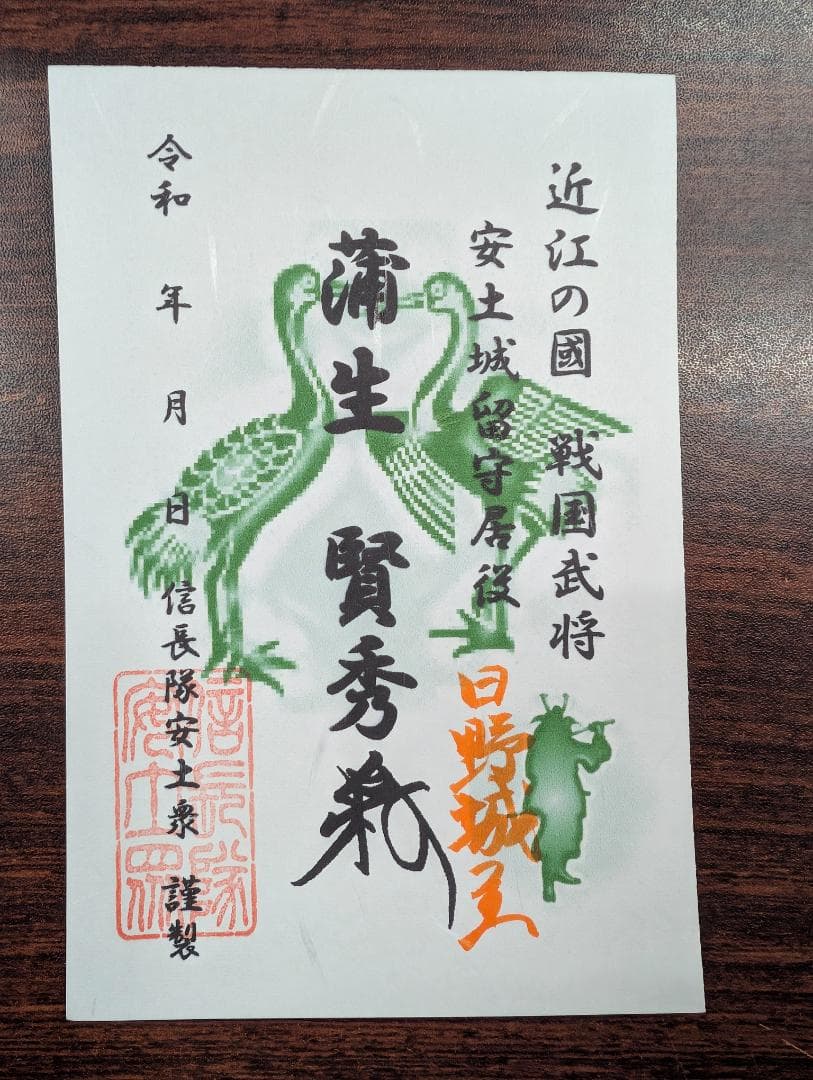 近江の國 戦国武将
安土城留守居役
日野城主
蒲生 賢秀
令和 年 月 日 信長隊安土衆 謹製
信長隊
安土衆